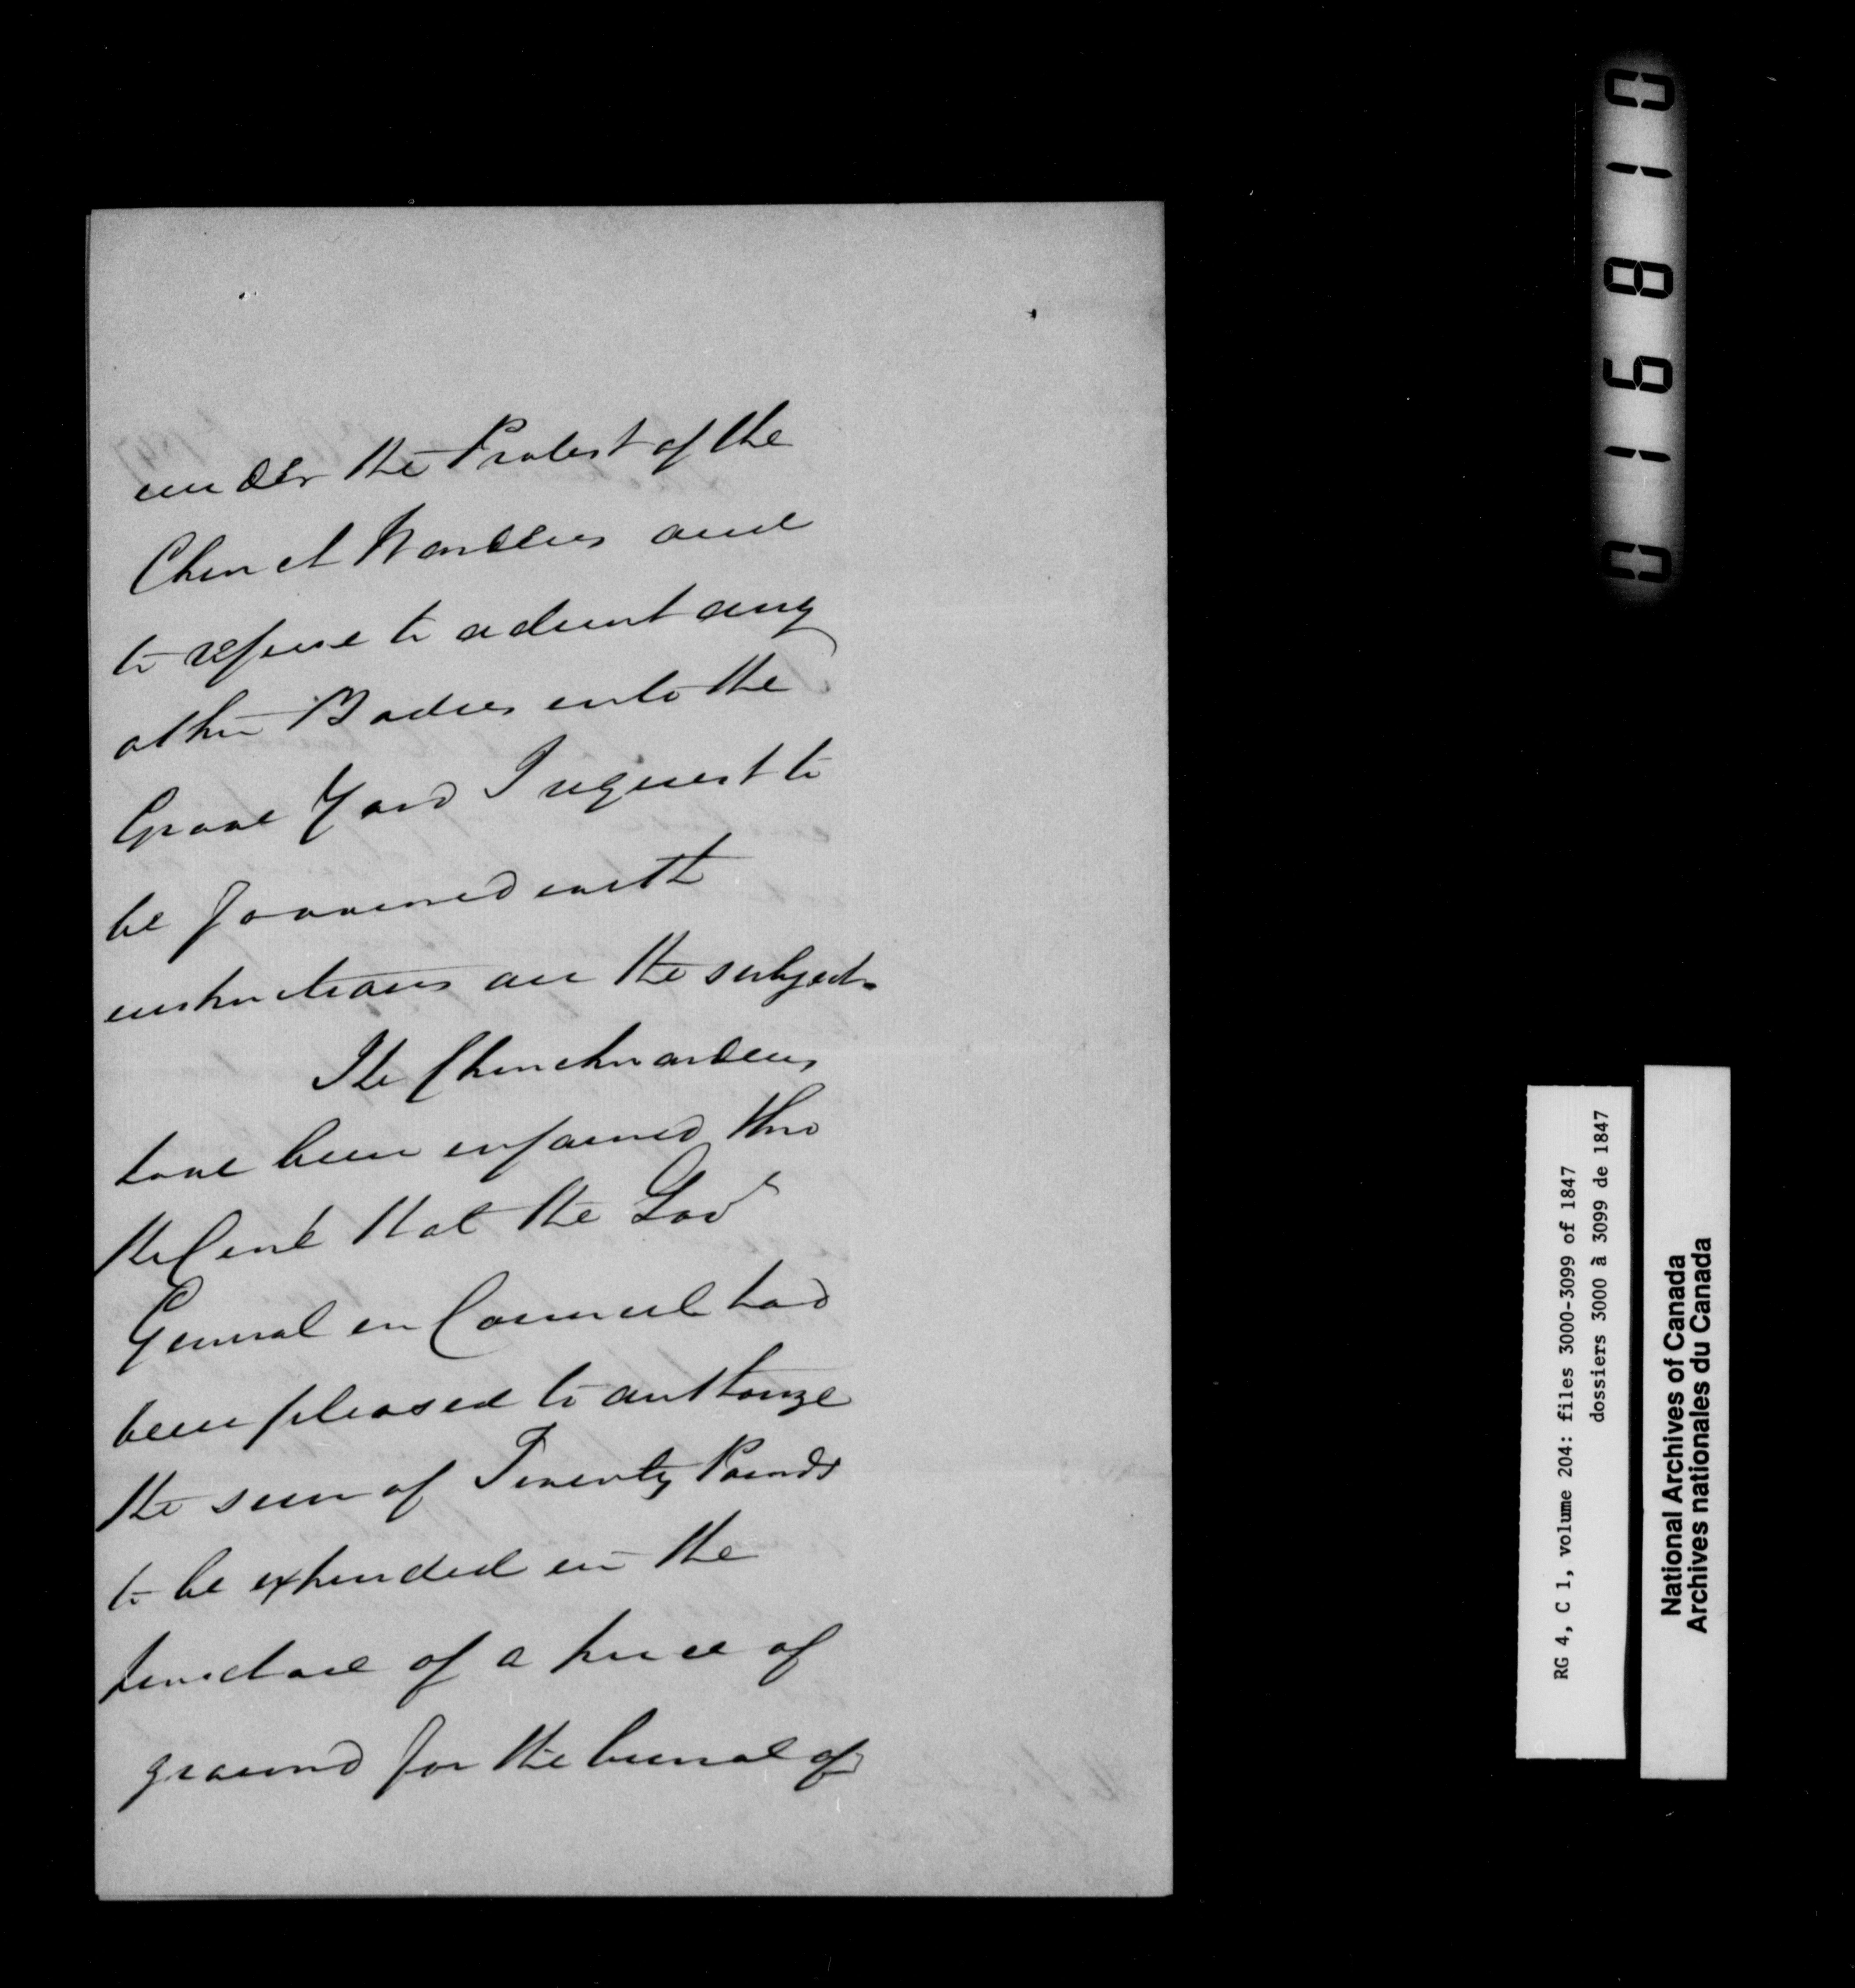 under the Protest of the
Church Wardens and
to refuse to admit any
other Bodies into the
Grave Yard I request to
be favoured with
instructions on the subject.
The Churchwardens
have been informed thro
the Curé that the Govr
General in Council had
been pleased to authorize
the sum of Twenty Pounds
to be expended in the
purchase of a piece of
ground for the burial of
016810
RG 4, C 1, volume 204: files 3000-3099 of 1847
dossiers 3000 à 3099 de 1847
National Archives of Canada
Archives nationales du Canada